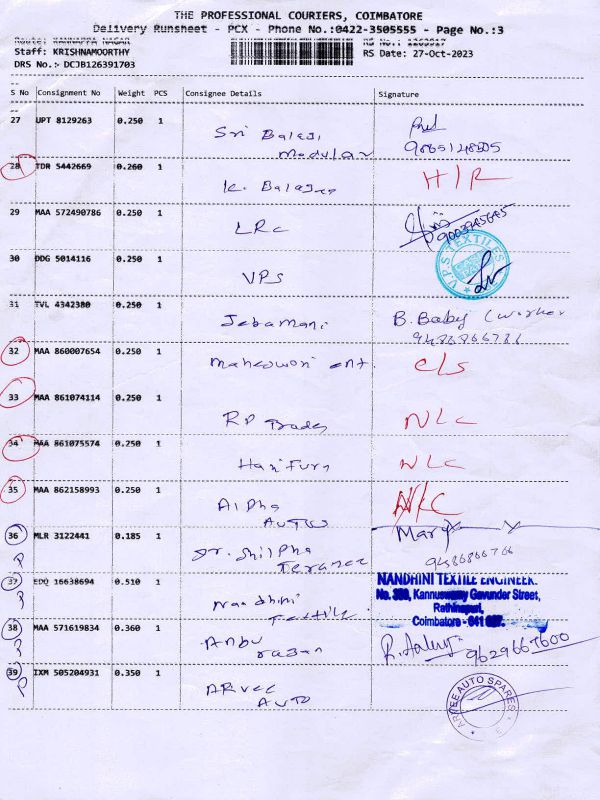 THE PROFESSIONAL COURIERS, COIMBATORE
Delivery Runsheet - PCX - Phone No.:0422-3505555 - Page No.:3
Route: KANNAPPA NAGAR RS No.: 1263917
Staff: KRISHNAMOORTHY
DRS No.:- DCJB126391703 RS Date: 27-Oct-2023
S No Consignment No Weight PCS Consignee Details Signature
27 UPT 8129263 0.250 1 Sri Balaji
Modular
28 TDR 5442669 0.260 1 K. Balajee H/R
29 MAA 572490786 0.250 1 LRC 9003745645
30 DDG 5014116 0.250 1 VPS V.P.S TEXTILES
31 TVL 4342380 0.250 1 Jebamani B. Baby (worker
9486866786
32 MAA 860007654 0.250 1 Maheswori ent. C/S
33 MAA 861074114 0.250 1 RP Trades NLC
34 MAA 861075574 0.250 1 Hari Furn NLC
35 MAA 862158993 0.250 1 Alpha
Auto
36 MLR 3122441 0.185 1 Dr. Shilpha Mary
P 9486866766
37 EDQ 16638694 0.510 1 Nandhini
Textile
P NANDHINI TEXTILE ENGINEER.
No. 399, Kannuswamy Gavunder Street,
Rathinapuri,
Coimbatore - 641 027.
38 MAA 571619834 0.360 1 Anbu
ragan
P 9629667600
39 IXM 505204931 0.350 1 ARVee
AUTO
P ARVEE AUTO SPARES